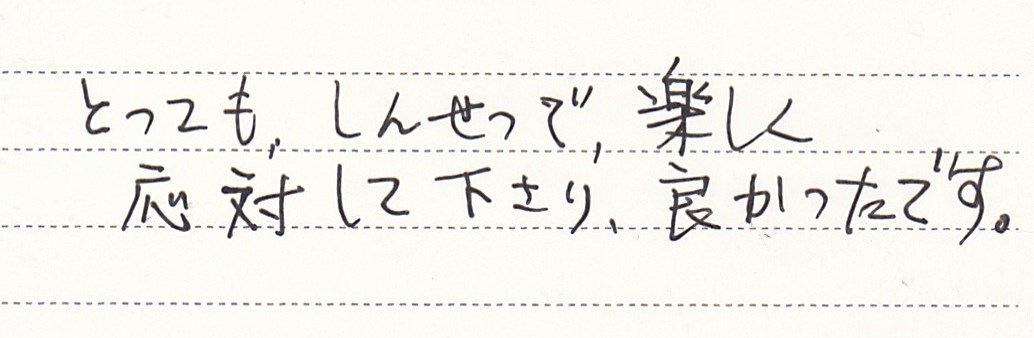 とっても、しんせつで、楽しく
応対して下さり、良かったです。